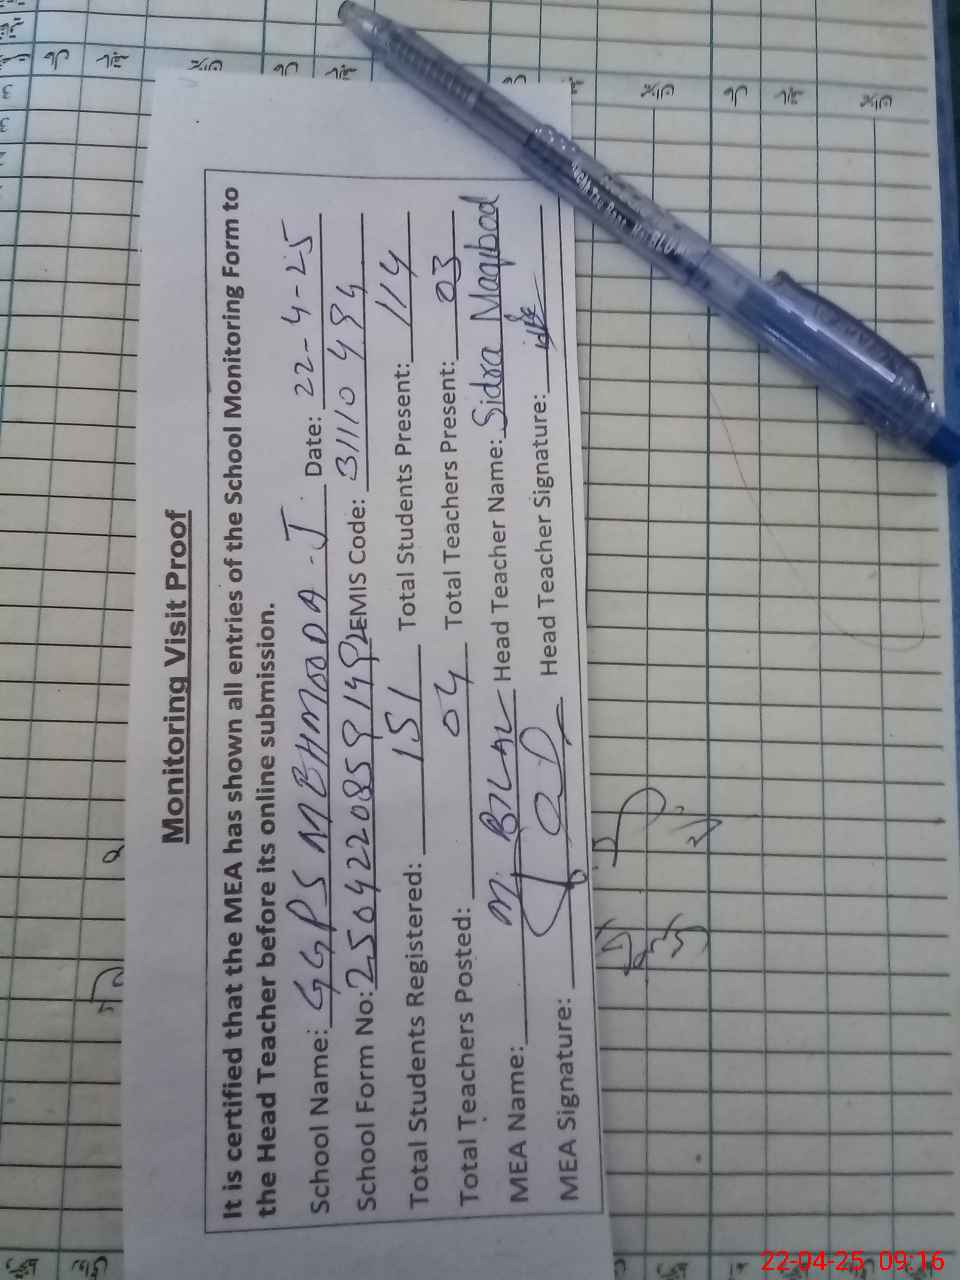 Monitoring Visit Proof
It is certified that the MEA has shown all entries of the School Monitoring Form to
the Head Teacher before its online submission.
School Name: GGPS MEHMOODA-J Date: 22-4-25
School Form No: EMIS Code: 31110494
Total Students Registered: 151 Total Students Present: 114
Total Teachers Posted: 04 Total Teachers Present: 03
MEA Name: M. BILAL Head Teacher Name: Sidra Maqbool
MEA Signature: Head Teacher Signature:
22-04-25 09:16